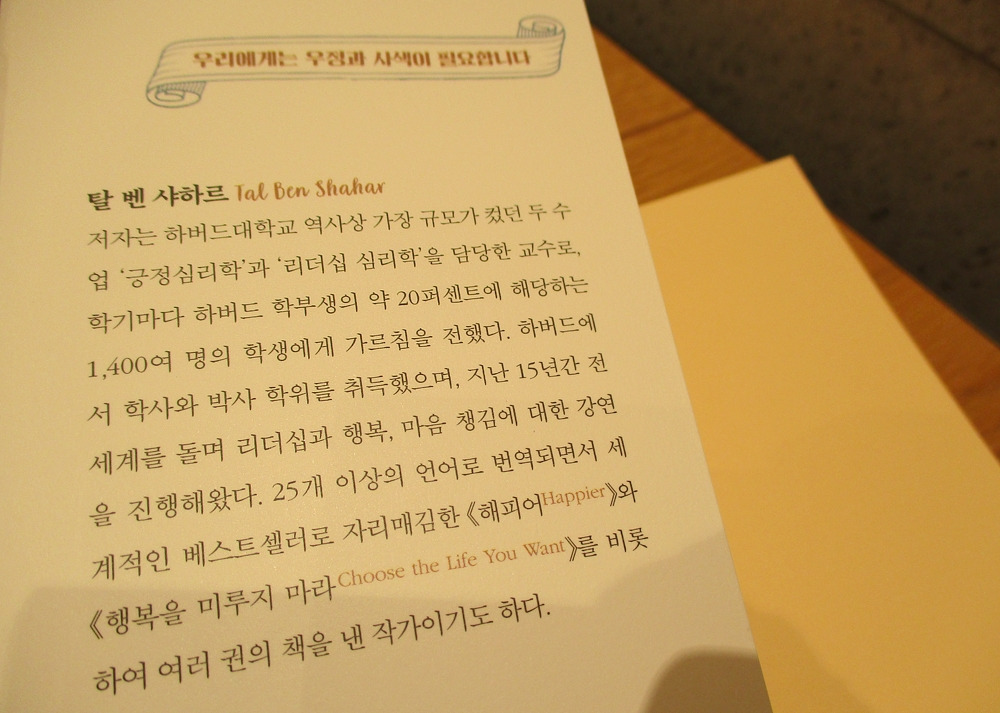 우리에게는 우정과 사색이 필요합니다
탈 벤 샤하르 Tal Ben Shahar
저자는 하버드대학교 역사상 가장 규모가 컸던 두 수
업 ‘긍정심리학’과 ‘리더십 심리학’을 담당한 교수로,
학기마다 하버드 학부생의 약 20퍼센트에 해당하는
1,400여 명의 학생에게 가르침을 전했다. 하버드에
서 학사와 박사 학위를 취득했으며, 지난 15년간 전
세계를 돌며 리더십과 행복, 마음 챙김에 대한 강연
을 진행해왔다. 25개 이상의 언어로 번역되면서 세
계적인 베스트셀러로 자리매김한 《해피어Happier》와
《행복을 미루지 마라Choose the Life You Want》를 비롯
하여 여러 권의 책을 낸 작가이기도 하다.